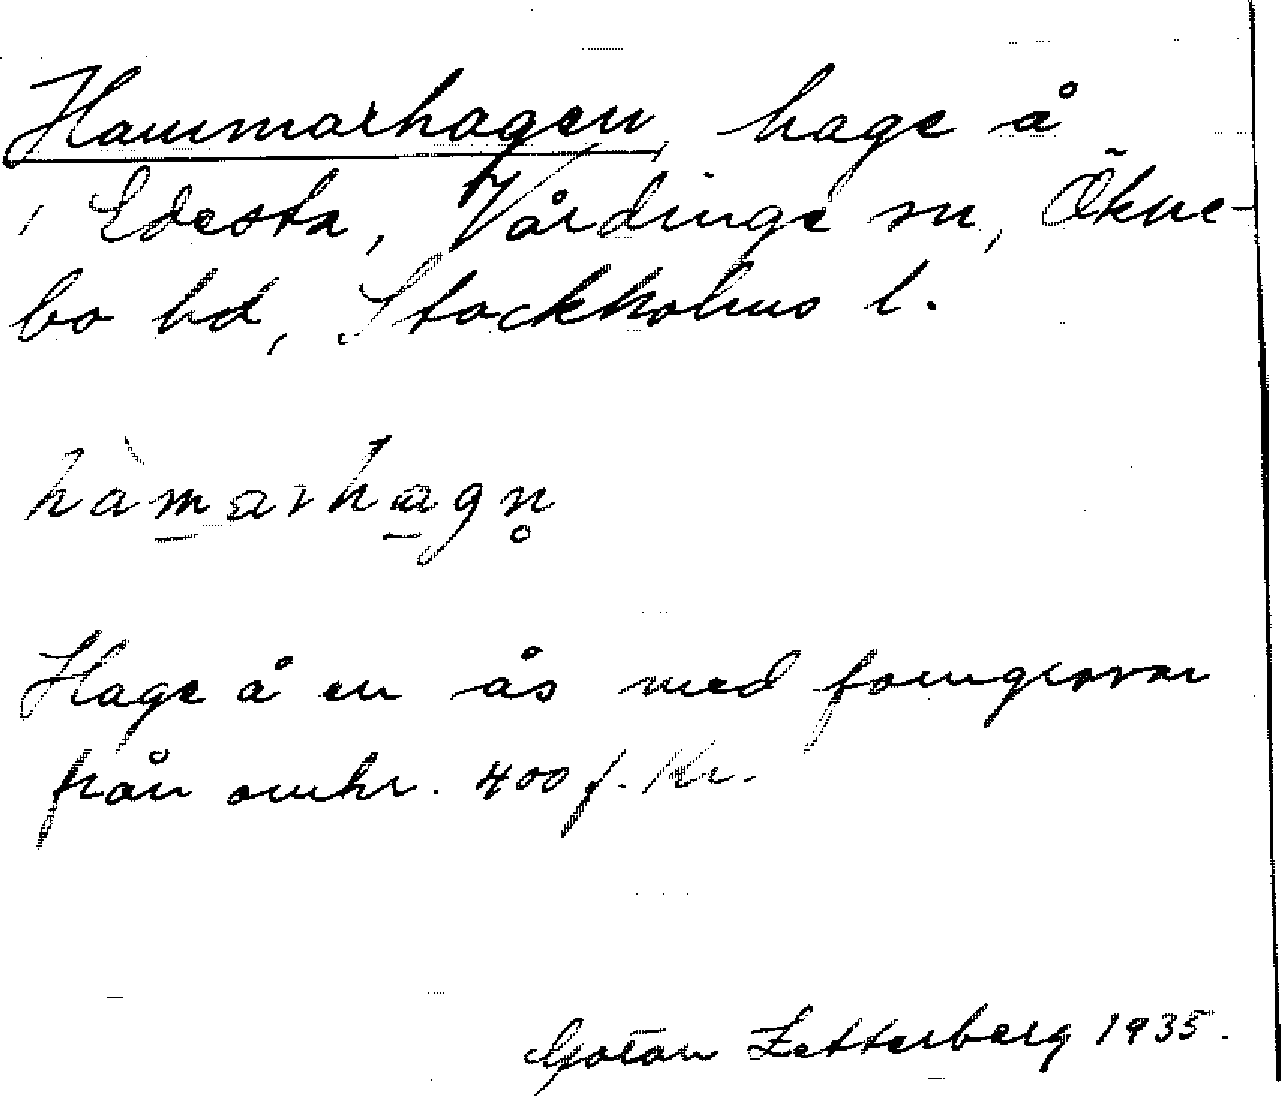 Hammarhagen, hage å
, Edesta, Vårdinge sn, Ökne-
bo hd, Stockholms l.
hàm̠arha̠gn̥
Hage å en ås med forngravar
från omkr. 400 f. Kr.
Göran Zetterberg 1935.